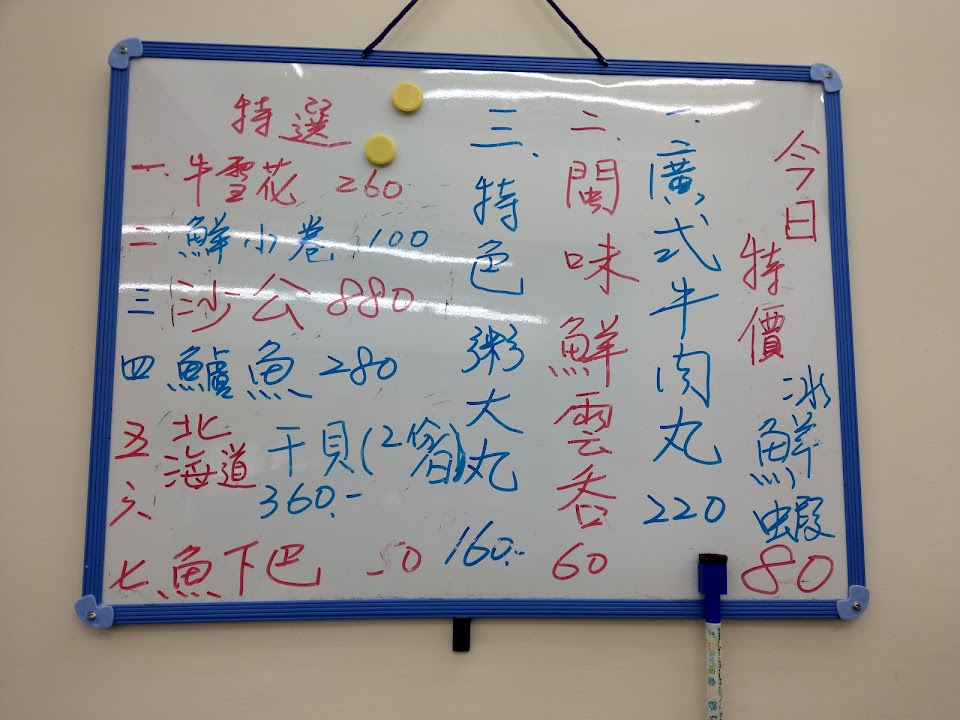 今日特價
冰鮮蝦 80
一、廣式牛肉丸 220
二、閩味鮮雲吞 60
三、特色粥大丸 160.-
特選
一、牛雪花 260
二 鮮小卷 100
三 沙公 880
四 鱸魚 280
五 北海道干貝(2 )
六 360.-
七 魚下巴 50